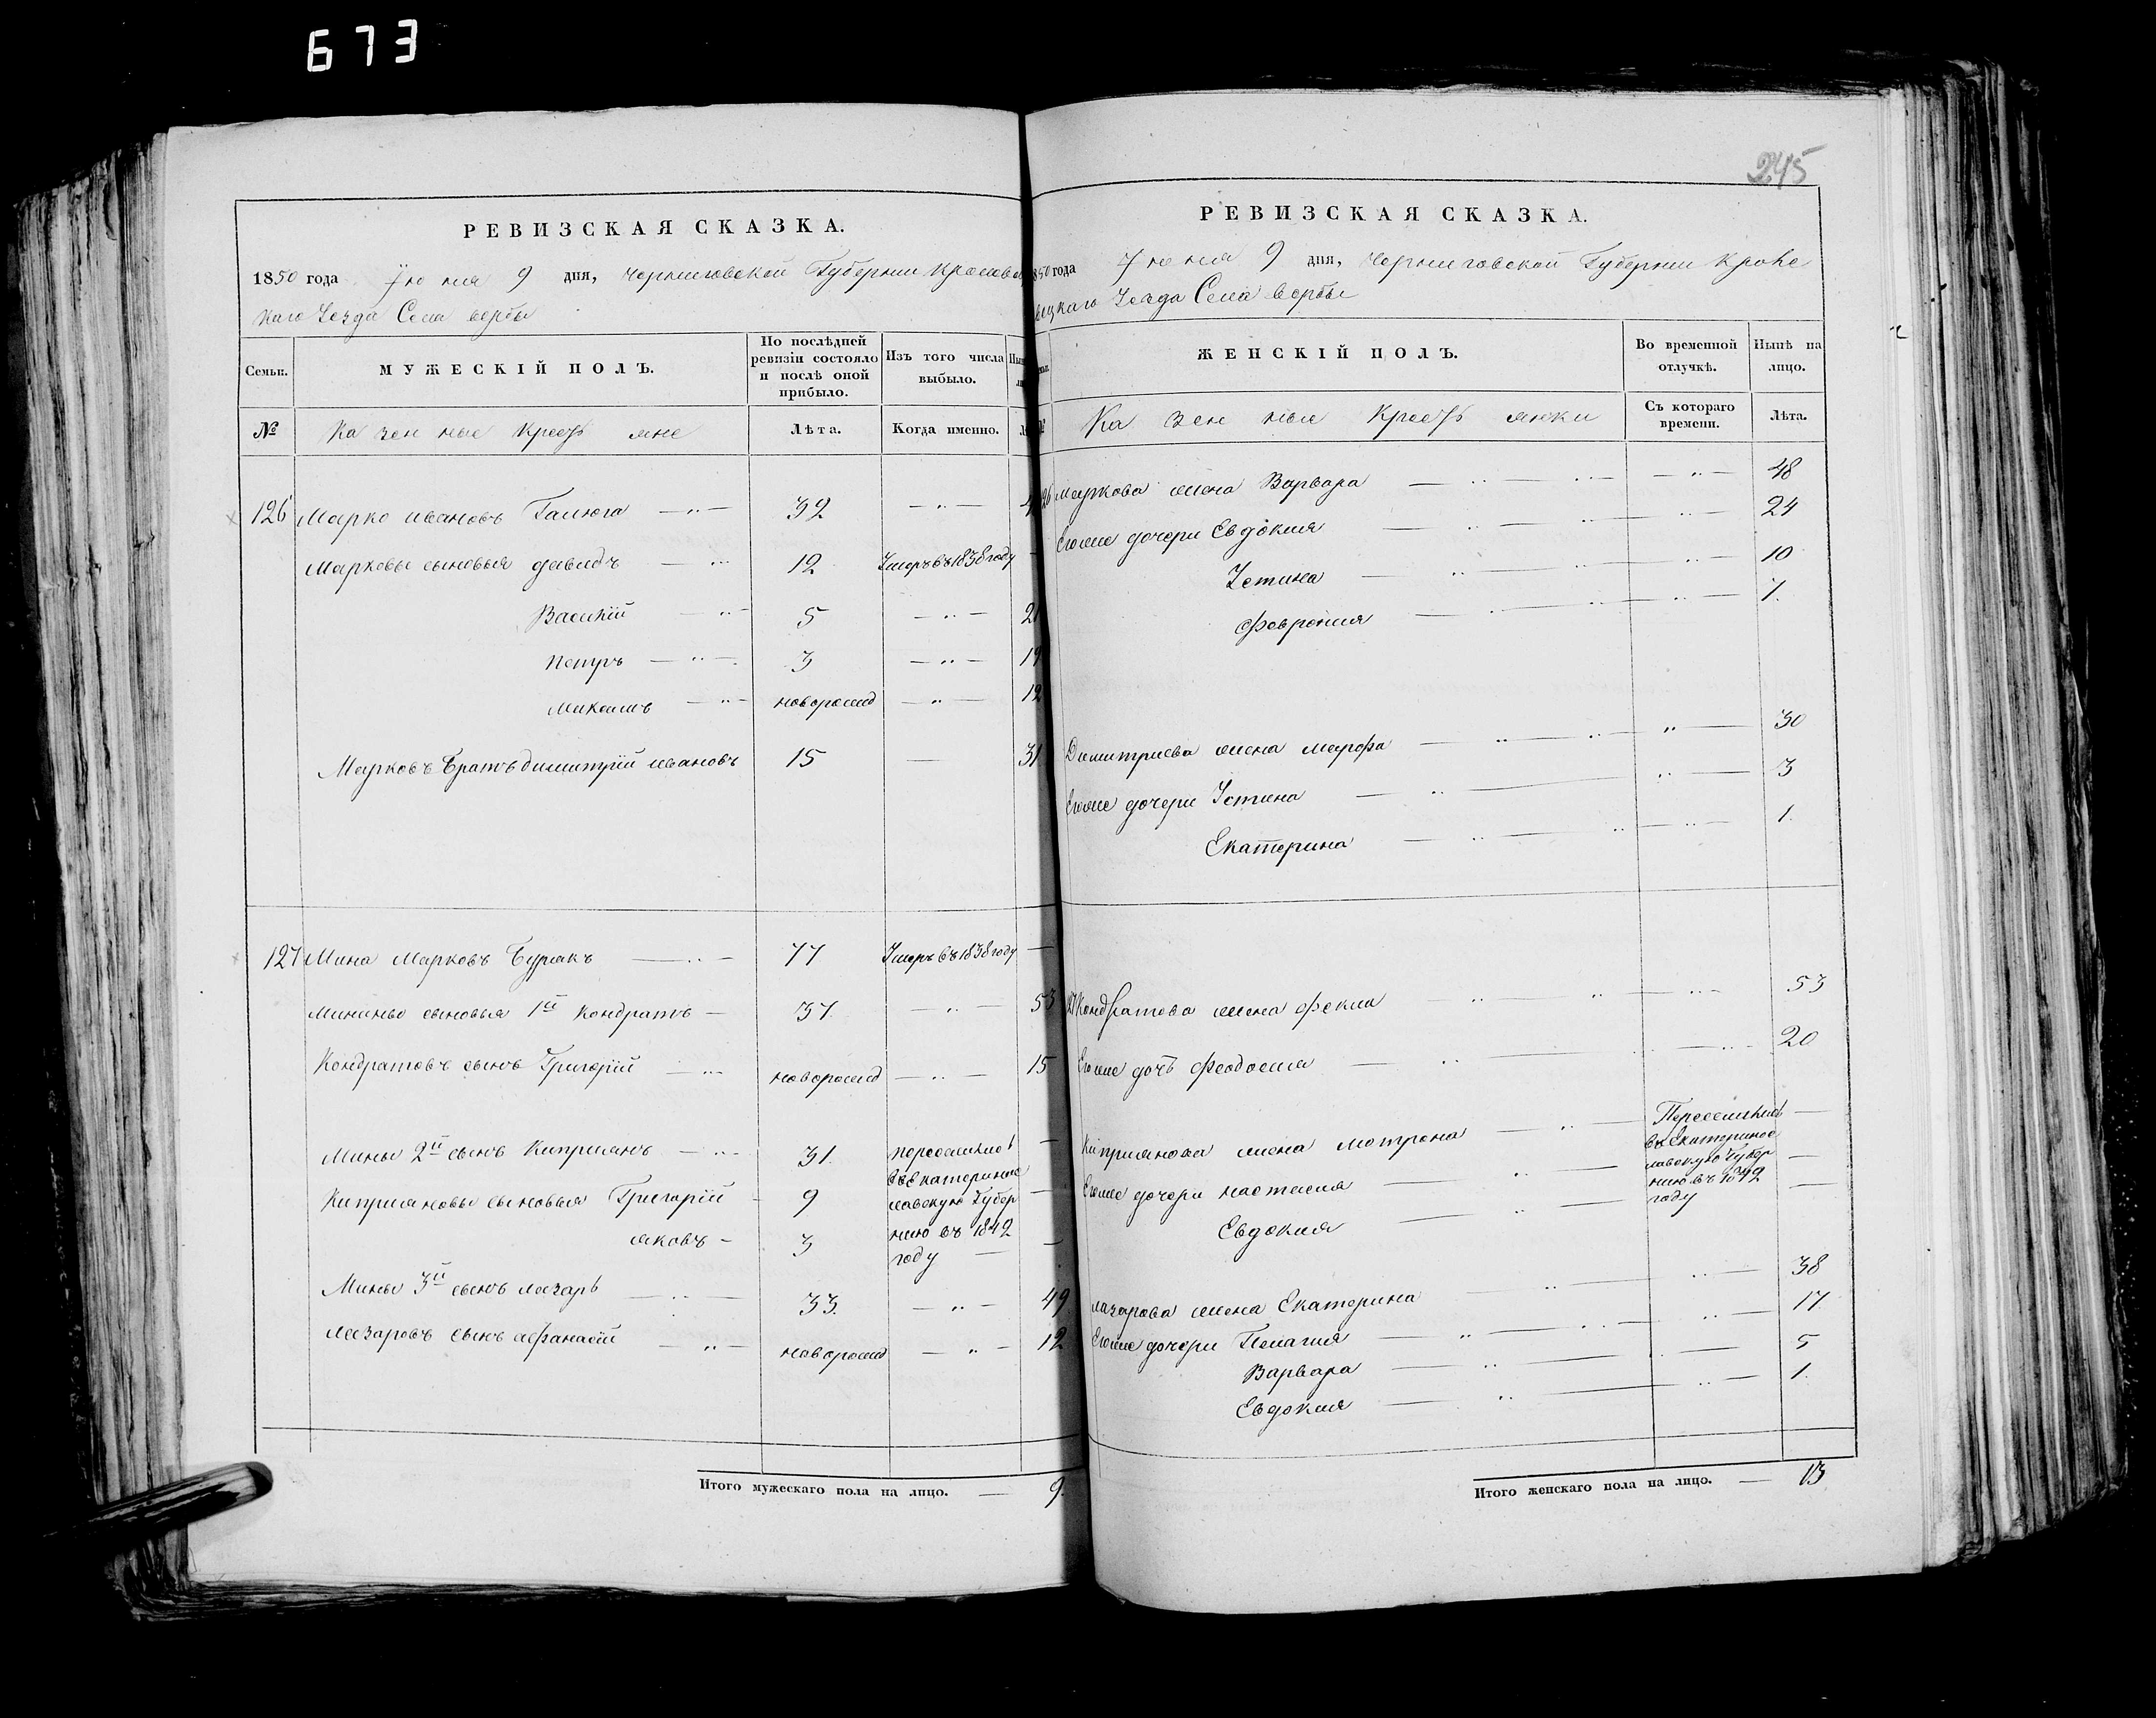 673
РЕВИЗСКАЯ СКАЗКА.
1850 года Іюня 9 дня, Черниговской Губерніи Кролевец
каго Уезда Села Вербы
Семьи.
МУЖЕСКІЙ ПОЛЪ.
По послѣдней ревизіи состояло и послѣ оной прибыло.
Изъ того числа выбыло.
№
Казенные Крестьяне
Лѣта.
Когда именно.
126 Марко Ивановъ Галюга 32
Марковы сыновья Давидъ 12 Умеръ въ 1838 году —
Василій 5 21
Петръ 3 19
Максимъ новорожд 12
Марковъ братъ Димитрій Ивановъ 15 — 31
127 Мина Марковъ Бурякъ 77 Умеръ въ 1838 году —
Минины сыновья 1й Кондратъ 37 53
Кондратовъ сынъ Григорій новорожд 15
Мины 2й сынъ Киприянъ 31 переселился —
въ Екатерино
Киприяновы сыновья Григорій 9 славскую Губер —
нію въ 1842
Яковъ 3 году —
Мины 3й сынъ Лазарь 33 49
Лазаровъ сынъ Афанасій новорожд 12
Итого мужескаго пола на лицо. — 9.
245
РЕВИЗСКАЯ СКАЗКА.
1850 года Іюня 9 дня, Черниговской Губерніи Кроле
вецкаго Уезда Села Вербы
ЖЕНСКІЙ ПОЛЪ.
Во временной отлучкѣ.
Нынѣ на лицо.
Казенныя Крестьянки
Съ котораго времени.
Лѣта.
126 Маркова жена Варвара 48
Егоже дочери Евдокия 24
Устина 10
Феврония 7.
Димитриева жена Марфа 30
Егоже дочери Устина 3
Екатерина 1.
127 Кондратова жена Фекла 53
Егоже дочь Феодосия 20
Киприянова жена Мотрона Переселилась —
въ Екатерино
Егоже дочери Настасия славскую Губер —
нию въ 1842
Евдокия году —
Лазарова жена Екатерина 38
Егоже дочери Пелагия 17
Варвара 5
Евдокия 1.
Итого женскаго пола на лицо. — 13